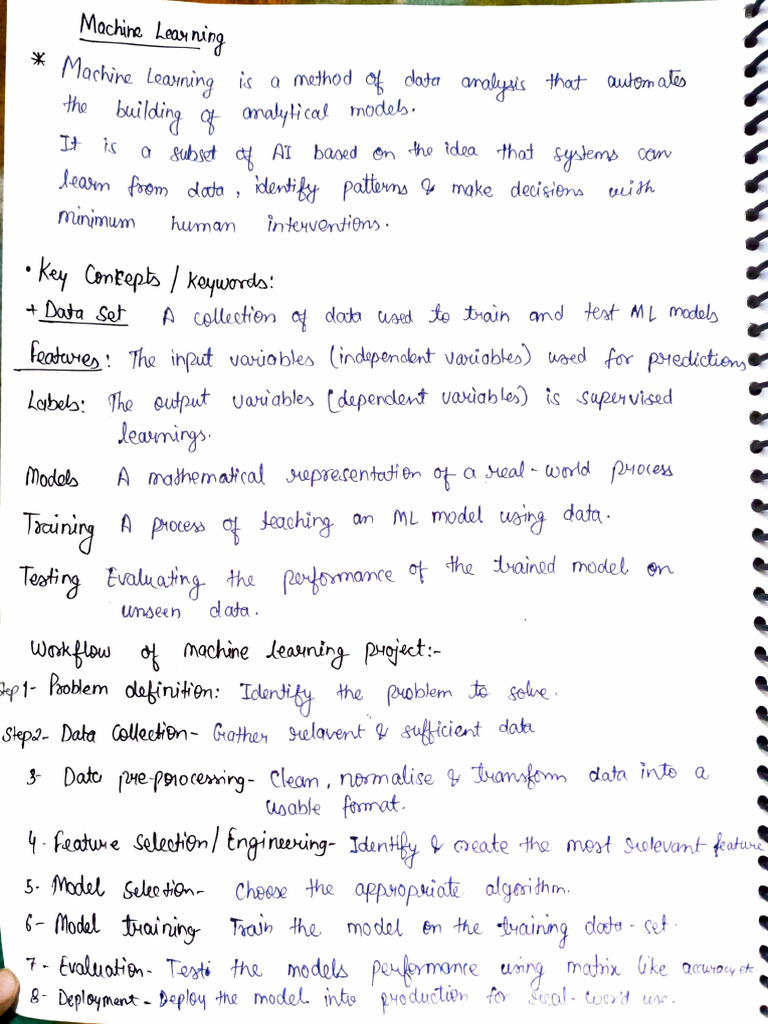 Machine Learning
* Machine Learning is a method of data analysis that automates
the building of analytical models.
It is a subset of AI based on the idea that systems can
learn from data, identify patterns & make decisions with
minimum human interventions.
• Key Concepts / Keywords:
+ Data Set A collection of data used to train and test ML models
Features: The input variables (independent variables) used for predictions
Labels: The output variables (dependent variables) is supervised
learnings.
Models A mathematical representation of a real-world process
Training A process of teaching an ML model using data.
Testing Evaluating the performance of the trained model on
unseen data.
Workflow of machine learning project:-
Step 1- Problem definition: Identify the problem to solve.
Step2- Data Collection- Gather relavent & sufficient data
3- Data pre-porocessing- Clean, normalise & transform data into a
usable format.
4- Feature Selection/Engineering- Identify & create the most relevant feature
5- Model Selection- Choose the appropriate algorithm.
6- Model training- Train the model on the training data-set.
7- Evaluation- Test the models performance using matrix like accuracy etc
8- Deployment- Deploy the model into production for real-word use.